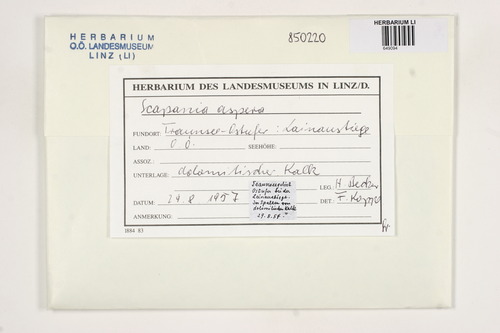 HERBARIUM
O.Ö. LANDESMUSEUM
LINZ (LI)
850220
HERBARIUM LI
649094
HERBARIUM DES LANDESMUSEUMS IN LINZ/D.
Scapania aspera
FUNDORT: Traunsee-Ostufer: Lainaustiege
LAND: O.Ö. SEEHÖHE:
ASSOZ.:
UNTERLAGE: dolomitischer Kalk
LEG.: H. Becker
DATUM: 29.8.1957 DET.: F. Koppe
ANMERKUNG:
Ostufer bei der
Lainaustiege.
In Spalten von
dolomitischem Kalk
29.8.57.
I884 83